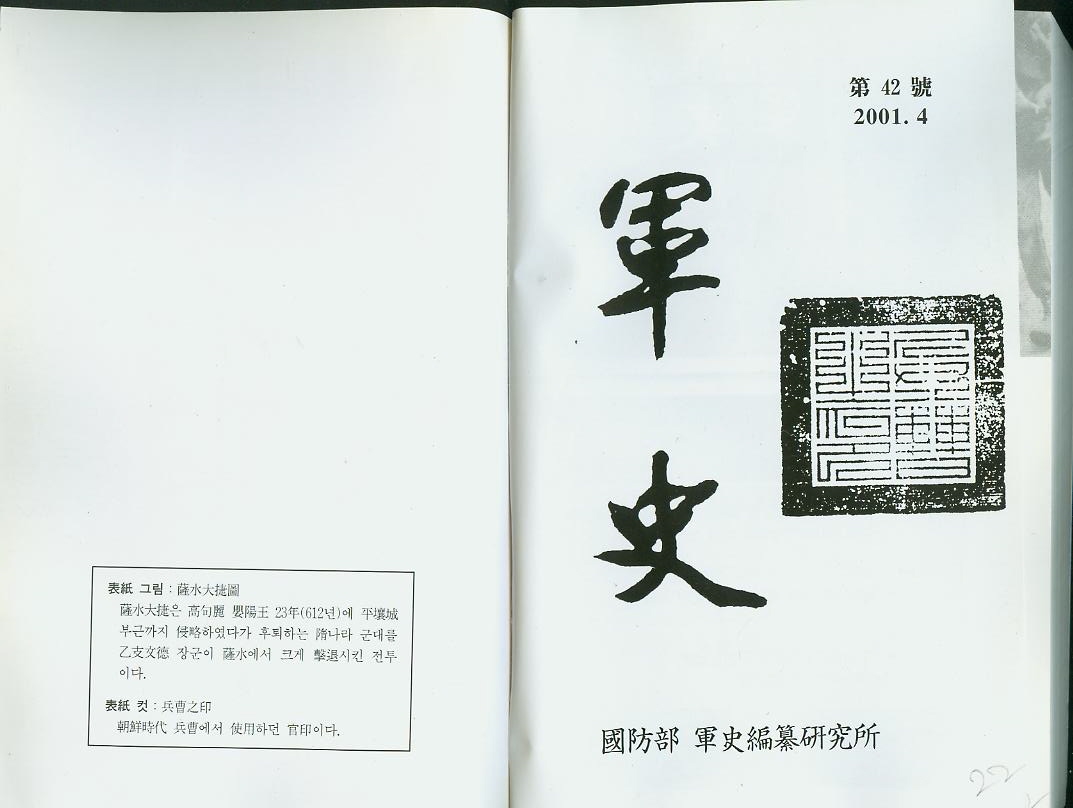 表紙 그림 : 薩水大捷圖
薩水大捷은 高句麗 嬰陽王 23年(612년)에 平壤城
부근까지 侵略하였다가 후퇴하는 隋나라 군대를
乙支文德 장군이 薩水에서 크게 擊退시킨 전투
이다.
表紙 컷 : 兵曹之印
朝鮮時代 兵曹에서 使用하던 官印이다.
第 42 號
2001. 4
軍
史
國防部 軍史編纂硏究所
22